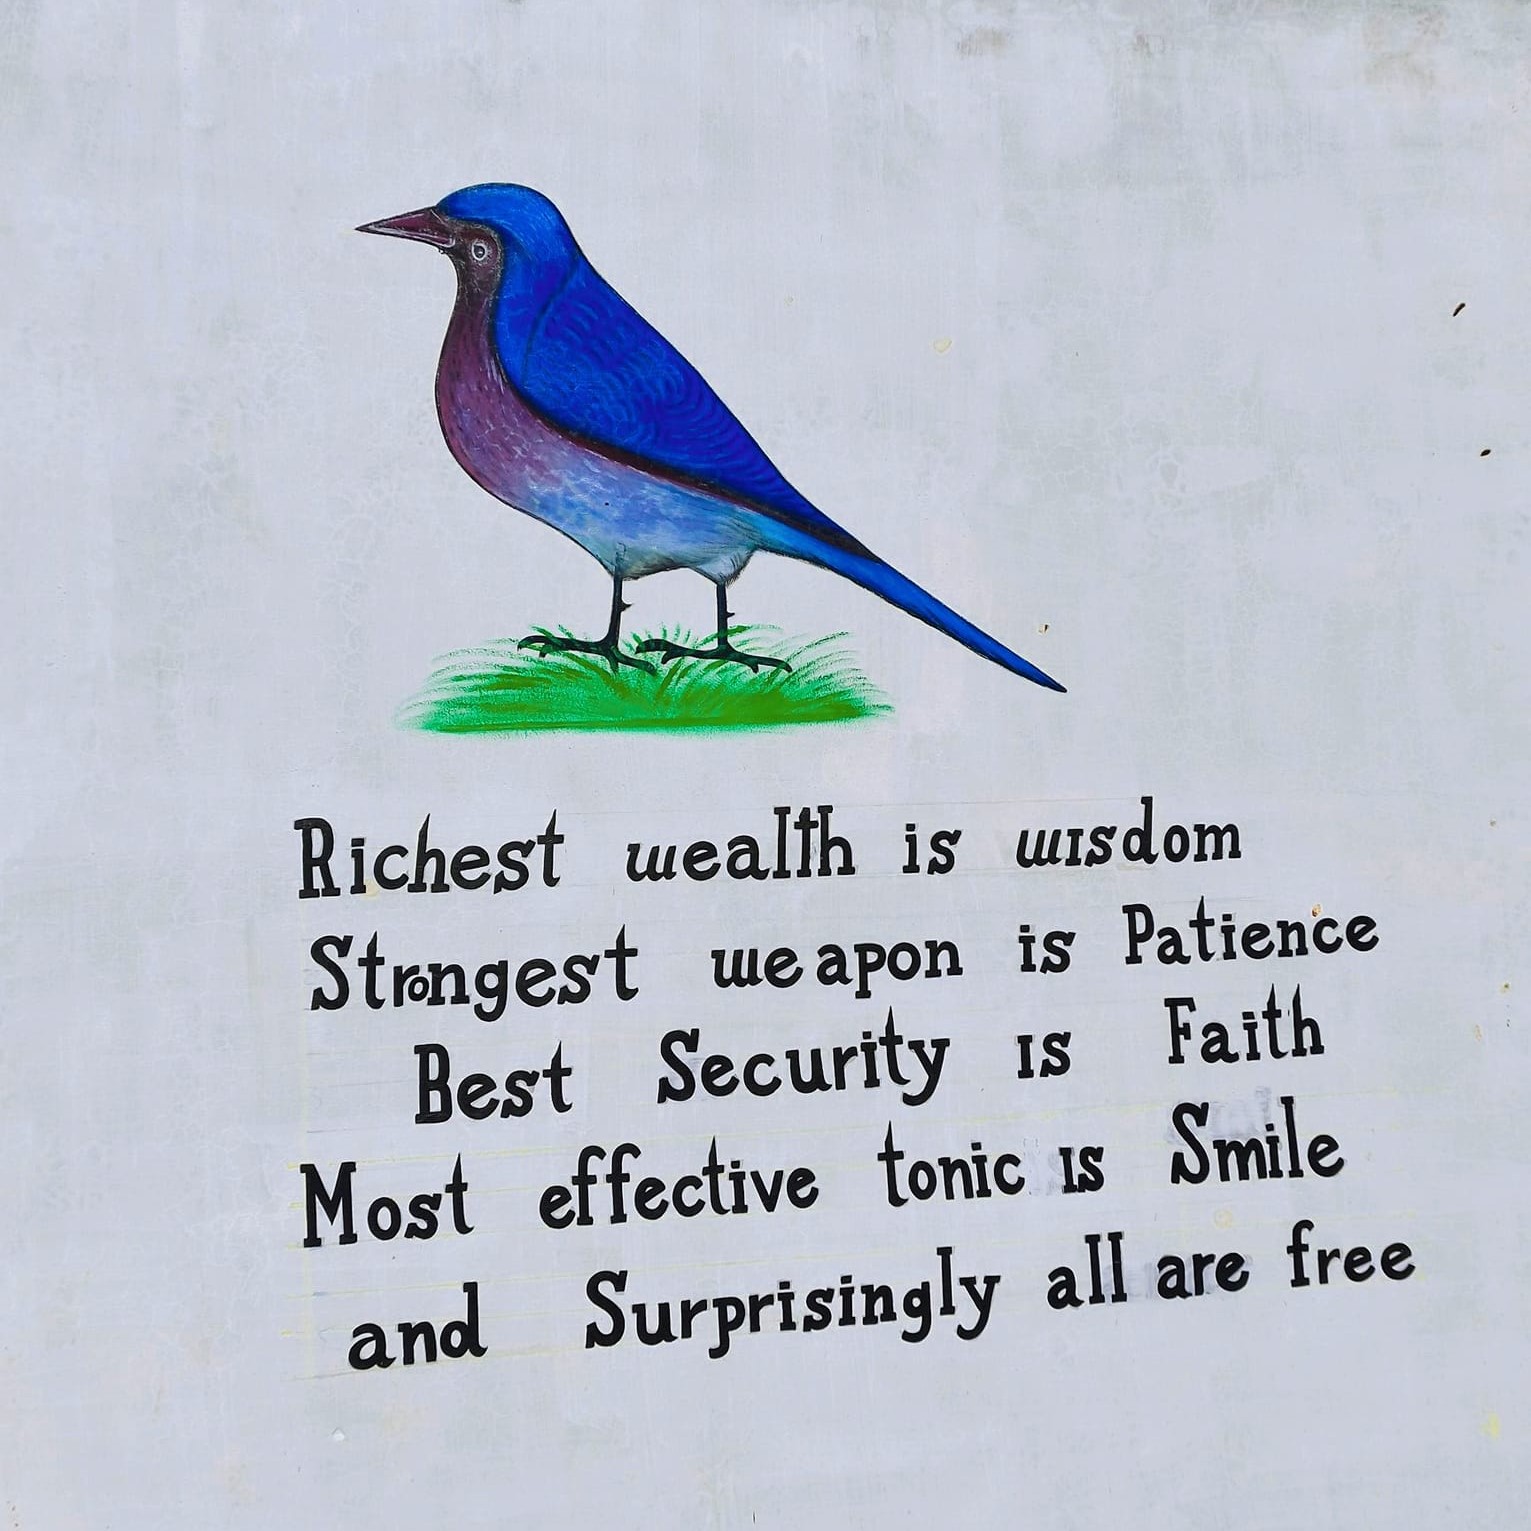 Richest wealth is wisdom
Strongest weapon is Patience
Best Security is Faith
Most effective tonic is Smile
and Surprisingly all are free